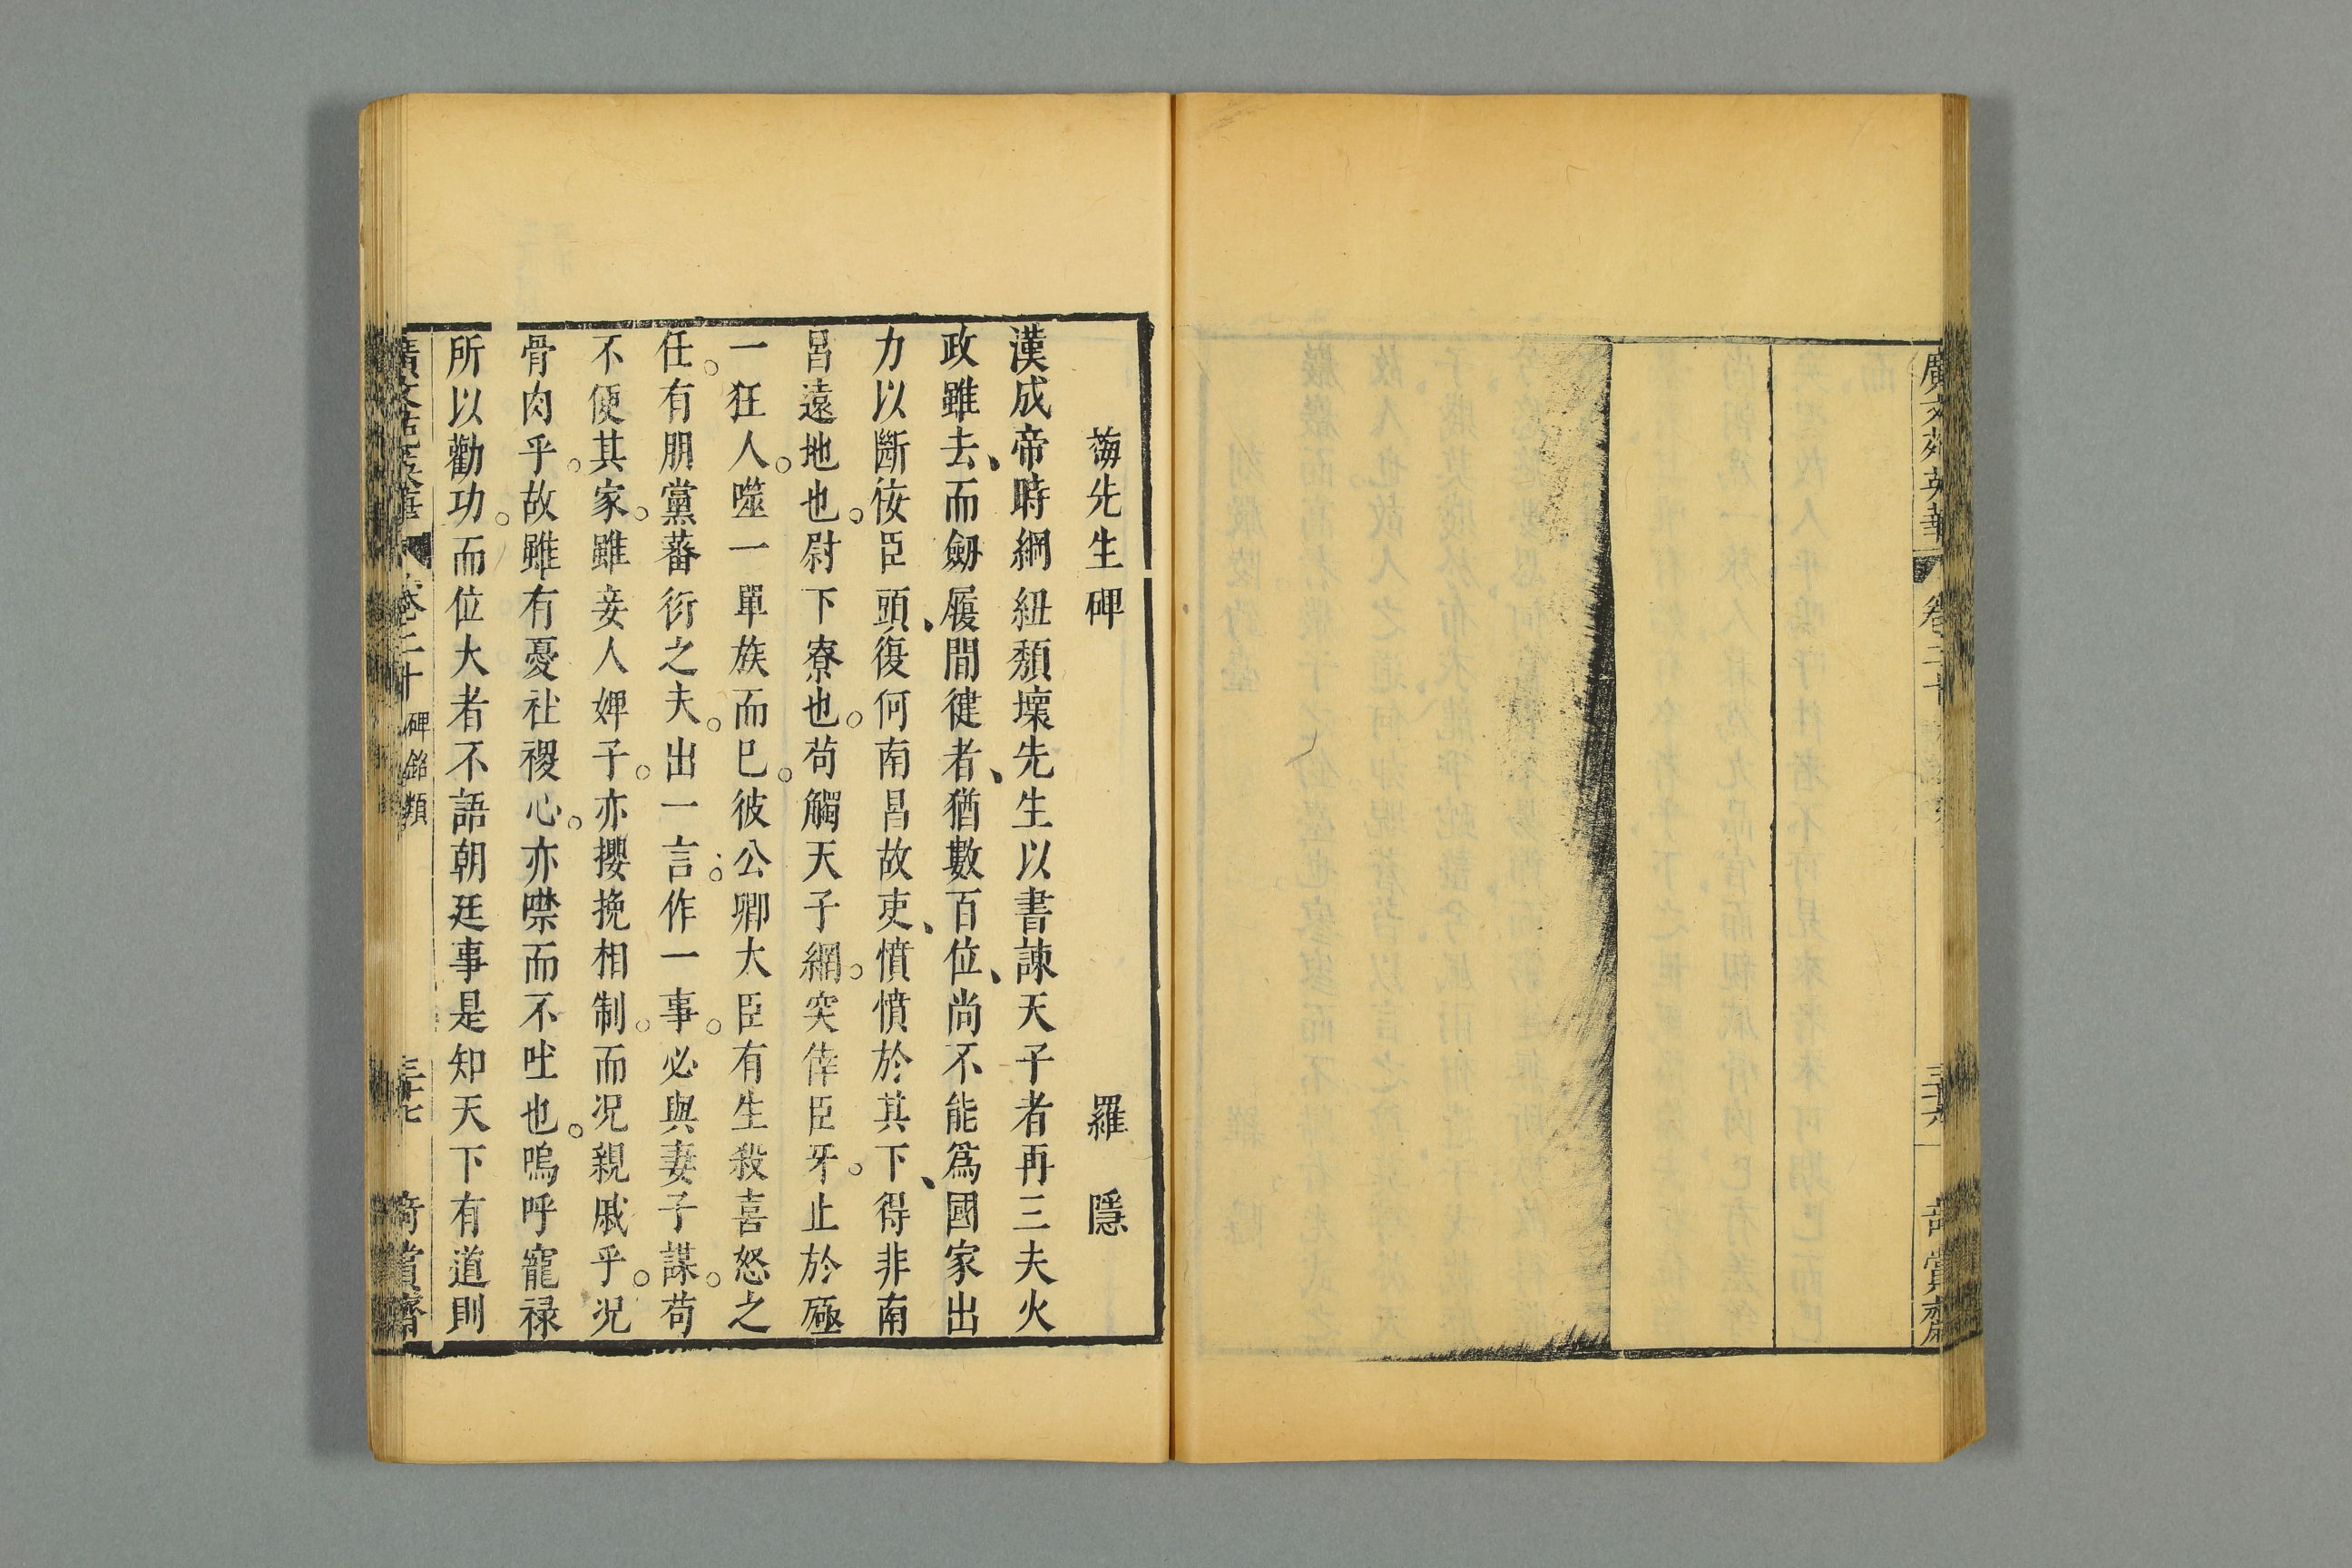 廣文苑英華 卷二十 三十六 奇賞齋
梅先生碑 羅隱
漢成帝時綱紐頽壞先生以書諫天子者再三夫火
政雖去而劒履間健者猶數百位尚不能爲國家出
力以斷佞臣頭復何南昌故吏憤憤於其下得非南
昌遠地也尉下寮也苟觸天子網突倖臣牙止於殛
一狂人噬一單族而已彼公卿大臣有生殺喜怒之
任有朋黨蕃衍之夫出一言作一事必與妻子謀苟
不便其家雖妾人婢子亦攖挽相制而况親戚乎况
骨肉乎故雖有憂社稷心亦噤而不吐也嗚呼寵禄
所以勸功而位大者不語朝廷事是知天下有道則
廣文苑英華 卷二十 碑銘類 三十七 奇賞齋